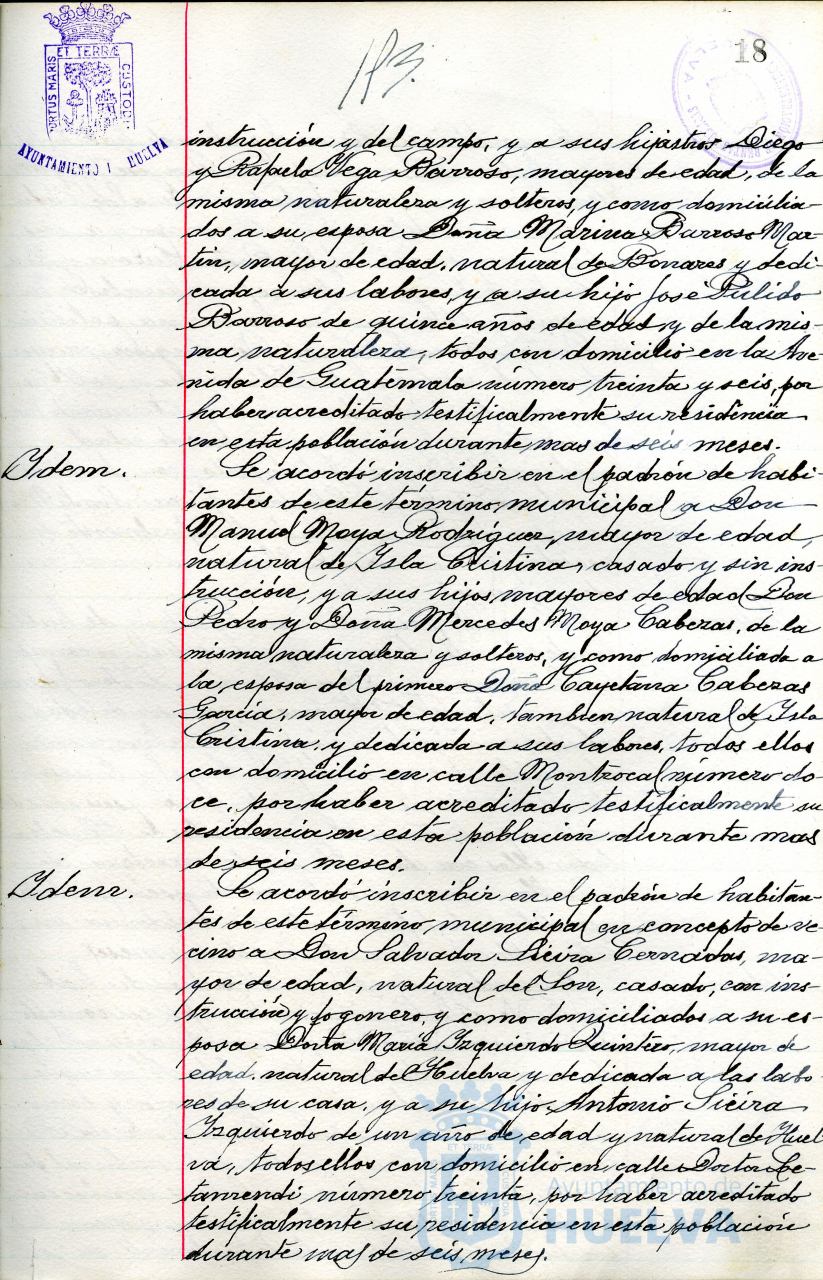 PORTUS MARIS ET TERRÆ CUSTODI
AYUNTAMIENTO HUELVA
183.
18
instrucción y del campo, y a sus hijastros Diego
y Rafaela Vega Barroso, mayores de edad, de la
misma naturaleza y solteros, y como domicilia-
dos a su esposa Doña Marina Barroso Mar-
tin, mayor de edad, natural de Bonares y dedi-
cada a sus labores, y a su hijo José Pulido
Barroso de quince años de edad y de la mis-
ma naturaleza, todos con domicilio en la Ave-
nida de Guatemala número treinta y seis, por
haber acreditado testificalmente su residencia
en esta población durante mas de seis meses.
Idem.
Se acordó inscribir en el padrón de habi-
tantes de este término municipal a Don
Manuel Moya Rodríguez, mayor de edad,
natural de Isla Cristina, casado y sin ins-
trucción, y a sus hijos mayores de edad Don
Pedro y Doña Mercedes Moya Cabezas, de la
misma naturaleza y solteros, y como domiciliada a
la esposa del primero Doña Cayetana Cabezas
García, mayor de edad, tambien natural de Isla
Cristina, y dedicada a sus labores, todos ellos
con domicilio en calle Montrocal número do-
ce, por haber acreditado testificalmente su
residencia en esta población durante mas
de seis meses.
Idem.
Se acordó inscribir en el padrón de habitan-
tes de este término municipal en concepto de ve-
cino a Don Salvador Sieira Cernadas, ma-
yor de edad, natural del Son, casado, con ins-
trucción y fogonero, y como domiciliados a su es-
posa Doña María Izquierdo Quintero, mayor de
edad, natural de Huelva y dedicada a las labo-
res de su casa, y a su hijo Antonio Sieira
Izquierdo de un año de edad y natural de Huel-
va, todos ellos con domicilio en calle Doctor Le-
tamendi número treinta, por haber acreditado
testificalmente su residencia en esta población
durante mas de seis meses.
Ayuntamiento de
HUELVA